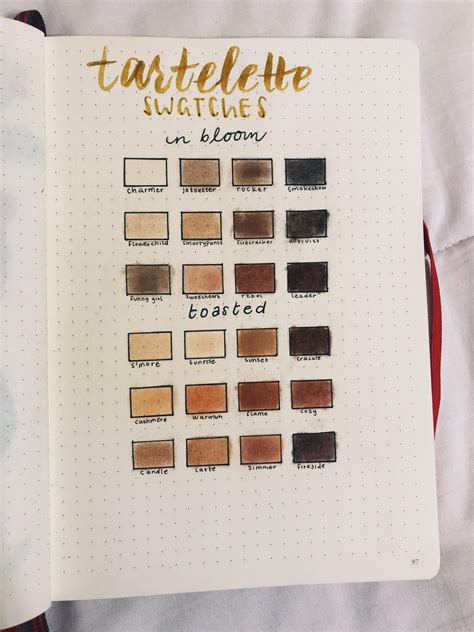 tartelette
SWATCHES
in bloom
charmer jetsetter rocker smokeshow
flowerchild smartypants firecracker activist
funny girl sweetheart rebel leader
toasted
s'more sunrise sunset cracule
cashmere warmth flame cozy
candle latte simmer fireside
97